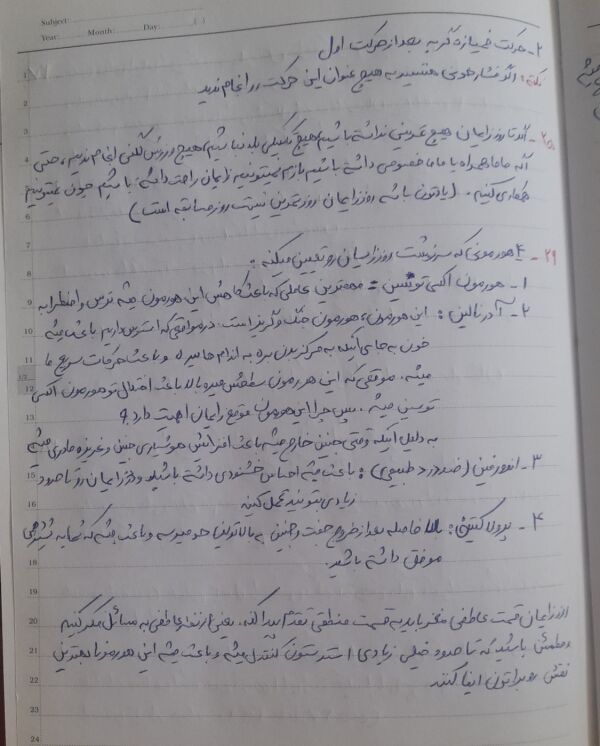 Subject:
Year: Month: Day: ( )
۲- حرکت خمیازه گربه بعد از حرکت اول
نکته: اگر فشار خونی هستید به هیچ عنوان این حرکت رو انجام ندید
۲۸- اگه تا روز زایمان هیچ تمرینی نداشته باشیم، هیچ تکنیکی بلد نباشیم، هیچ ورزش لگنی انجام ندیم، حتی
اگه ماما همراه یا ماما خصوصی داشته باشیم بازم نمیتونیم زایمان راحت داشته باشیم چون نمیتونیم
همکاری کنیم. (یادتون باشه روز زایمان روز تمرین نیست روز مسابقه است)
۲۹- ۴ هورمونی که سرنوشت روز زایمان رو تعیین میکنه:
۱- هورمون اکسی توسین = مهمترین عاملی که باعث کاهش این هورمون میشه ترس و اضطرابه
۲- آدرنالین: این هورمون، هورمون جنگ و گریز است. در مواقعی که استرس داریم باعث میشه
خون به جای اینکه به مرکز بدن بره به اندام ها میره و باعث حرکات سریع ما
میشه. موقعی که این هورمون سطحش میره بالا باعث اختلال تو هورمون اکسی
توسین میشه. پس چرا این هورمون موقع زایمان اهمیت داره؟
به دلیل اینکه وقتی جنین خارج میشه باعث افزایش هوشیاری جنین و غریزه مادری میشه
۳- اندورفین (ضد درد طبیعی): باعث میشه احساس خشنودی داشته باشید و درد زایمان رو تا حدود
زیادی بتونید تحمل کنید
۴- پرولاکتین: بلافاصله بعد از خروج جفت و جنین به بالاترین حد میرسه و باعث میشه که شما یه شیردهی
موفق داشته باشید.
روز زایمان قسمت عاطفی مغز باید به قسمت منطقی تقدم پیدا کنه، یعنی از نظر عاطفی به مسائل فکر کنید
و مطمئن باشید که تا حدود خیلی زیادی استرستون کنترل میشه و باعث میشه این هورمونها بهترین
نقش رو براتون ایفا کنند